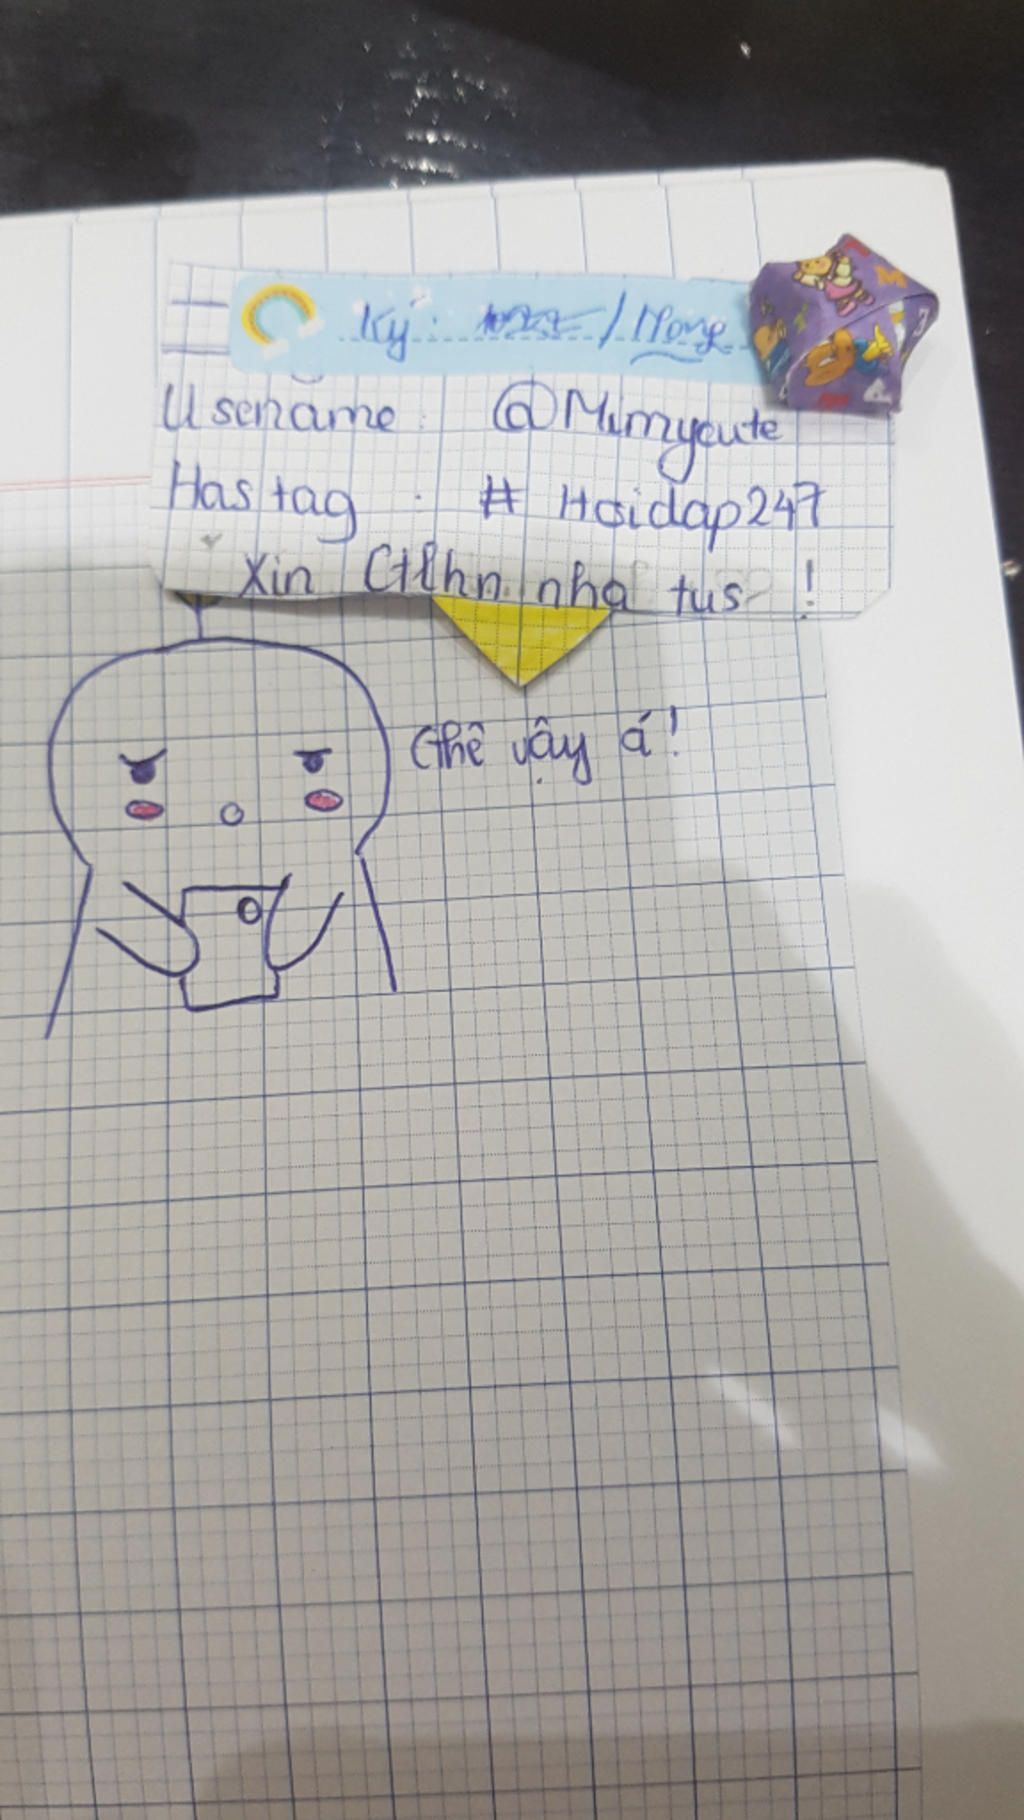 Ký: / Mong
Usename : @Mimycute
Hastag : # Hoidap247
Xin Ctlhn nha tus !
Ghê vậy á!